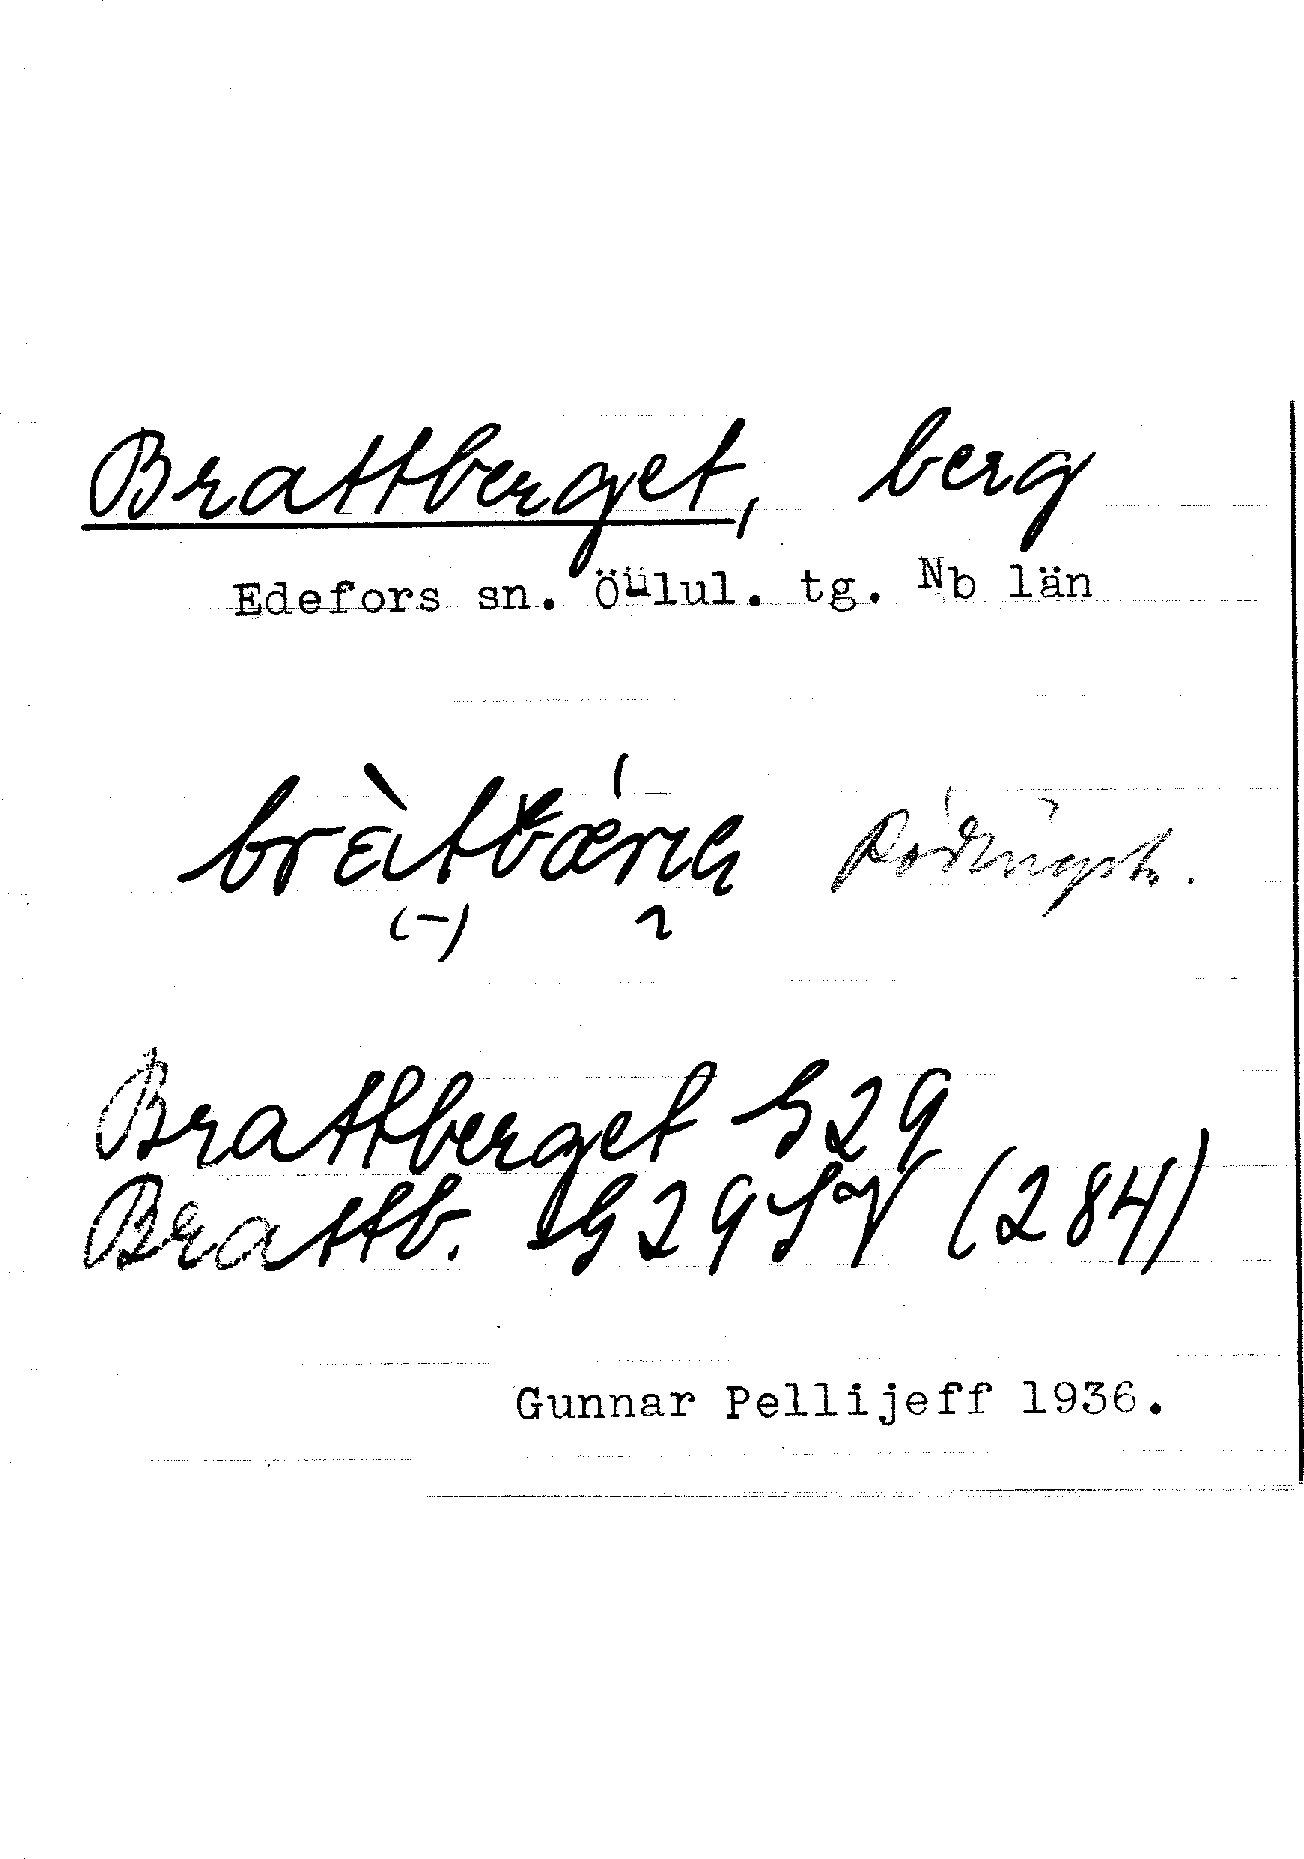 Brattberget, berg
Edefors sn. Ö-lul. tg. Nb län
bràtbǽrɪɕ
Brattberget G29
Brattb. G29SV (284)
Gunnar Pellijeff 1936.